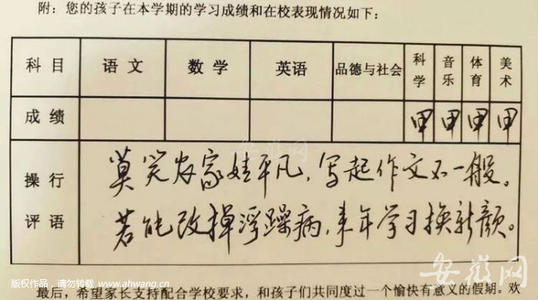 附：您的孩子在本学期的学习成绩和在校表现情况如下：
科目 语文 数学 英语 品德与社会 科学 音乐 体育 美术
成绩 甲 甲 甲 甲
操行评语
莫笑农家娃平凡，写起作文不一般。
若能改掉浮躁病，来年学习换新颜。
安徽网
版权作品，请勿转载 www.ahwang.cn
安徽网
最后，希望家长支持配合学校要求，和孩子们共同度过一个愉快有意义的假期。欢